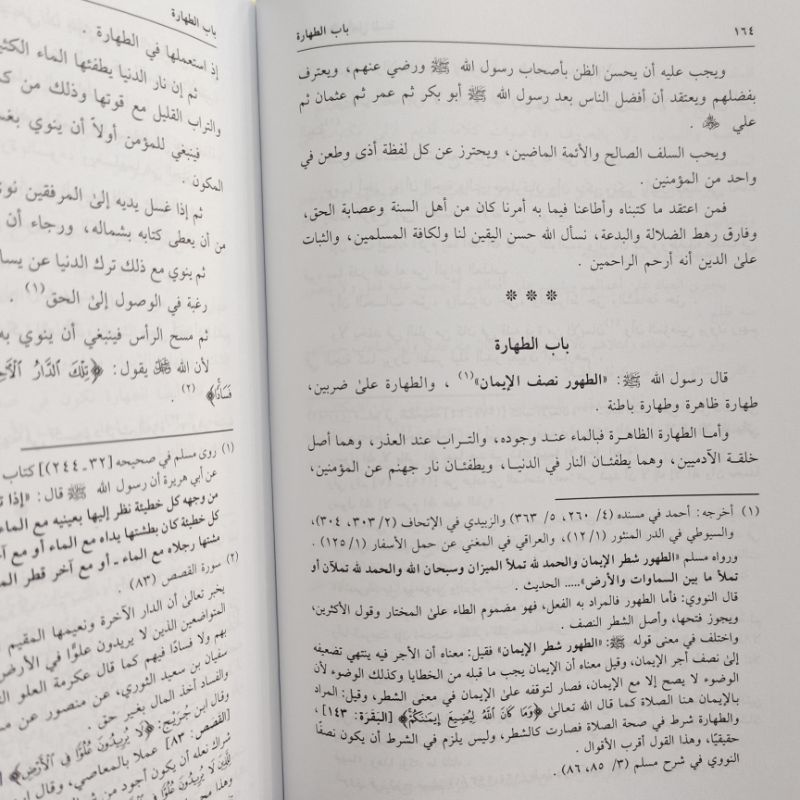 ١٦٤
باب الطهارة
ويجب عليه أن يحسن الظن بأصحاب رسول الله ﷺ ورضي عنهم، ويعترف
بفضلهم ويعتقد أن أفضل الناس بعد رسول الله ﷺ أبو بكر ثم عمر ثم عثمان ثم
علي .
ويحب السلف الصالح والأئمة الماضين، ويحترز عن كل لفظة أذى وطعن في
واحد من المؤمنين .
فمن اعتقد ما كتبناه وأطاعنا فيما به أمرنا كان من أهل السنة وعصابة الحق،
وفارق رهط الضلالة والبدعة، نسأل الله حسن اليقين لنا ولكافة المسلمين، والثبات
علىٰ الدين أنه أرحم الراحمين .
* * *
باب الطهارة
قال رسول الله ﷺ: «الطهور نصف الإيمان»(١) ، والطهارة علىٰ ضربين،
طهارة ظاهرة وطهارة باطنة .
وأما الطهارة الظاهرة فبالماء عند وجوده، والتراب عند العذر، وهما أصل
خلقة الآدميين، وهما يطفئان النار في الدنيا، ويطفئان نار جهنم عن المؤمنين،
(١) أخرجه: أحمد في مسنده (٤/ ٢٦٠، ٥/ ٣٦٣) والزبيدي في الإتحاف (٢/ ٣٠٣، ٣٠٤)،
والسيوطي في الدر المنثور (١/ ١٢)، والعراقي في المغني عن حمل الأسفار (١/ ١٢٥) .
ورواه مسلم «الطهور شطر الإيمان والحمد لله تملأ الميزان وسبحان الله والحمد لله تملآن أو
تملأ ما بين السماوات والأرض»..... الحديث .
قال النووي: فأما الطهور فالمراد به الفعل، فهو مضموم الطاء علىٰ المختار وقول الأكثرين،
ويجوز فتحها، وأصل الشطر النصف .
واختلف في معنى قوله ﷺ: «الطهور شطر الإيمان» فقيل: معناه أن الأجر فيه ينتهي تضعيفه
إلىٰ نصف أجر الإيمان، وقيل معناه أن الإيمان يجب ما قبله من الخطايا وكذلك الوضوء لأن
الوضوء لا يصح إلا مع الإيمان، فصار لتوقفه علىٰ الإيمان في معنى الشطر، وقيل: المراد
بالإيمان هنا الصلاة كما قال الله تعالىٰ ﴿وَمَا كَانَ ٱللَّهُ لِيُضِيعَ إِيمَٰنَكُمْ﴾ [البقرة: ١٤٣]،
والطهارة شرط في صحة الصلاة فصارت كالشطر، وليس يلزم في الشرط أن يكون نصفًا
حقيقيًا، وهذا القول أقرب الأقوال .
النووي في شرح مسلم (٣/ ٨٥، ٨٦) .
باب الطهارة
إذ استعملها في الطهارة .
ثم إن نار الدنيا يطفئها الماء
والتراب القليل مع قوتها وذلك من
فينبغي للمؤمن أولاً أن ينوي
المكون .
ثم إذا غسل يديه إلىٰ المرفقين
من أن يعطى كتابه بشماله، ورجاء أن
ثم ينوي مع ذلك ترك الدنيا عن
رغبة في الوصول إلىٰ الحق(١) .
ثم مسح الرأس فينبغي أن ينوي
لأن الله يقول: ﴿تِلْكَ ٱلدَّارُ
فَسَادًا﴾ (٢) .
(١) روى مسلم في صحيحه [٣٢ - (٢٤٤)] كتاب
عن أبي هريرة أن رسول الله ﷺ قال: «إذا
من وجهه كل خطيئة نظر إليها بعينيه مع الماء
كل خطيئة كان بطشتها يداه مع الماء أو مع
مشتها رجلاه مع الماء - أو مع آخر قطر
(٢) سورة القصص (٨٣) .
يخبر تعالىٰ أن الدار الآخرة ونعيمها المقيم
المتواضعين الذين لا يريدون علوًا في الأرض
بهم ولا فسادًا فيهم كما قال عكرمة العلو
سفيان بن سعيد الثوري، عن منصور عن
والفساد أخذ المال بغير حق .
وقال ابن جُرَيْج: ﴿لَا يُرِيدُونَ عُلُوًّا فِي ٱلْأَرْضِ﴾
[القصص: ٨٣] عملا بالمعاصي، وقال
شراك نعله أن يكون أجود من